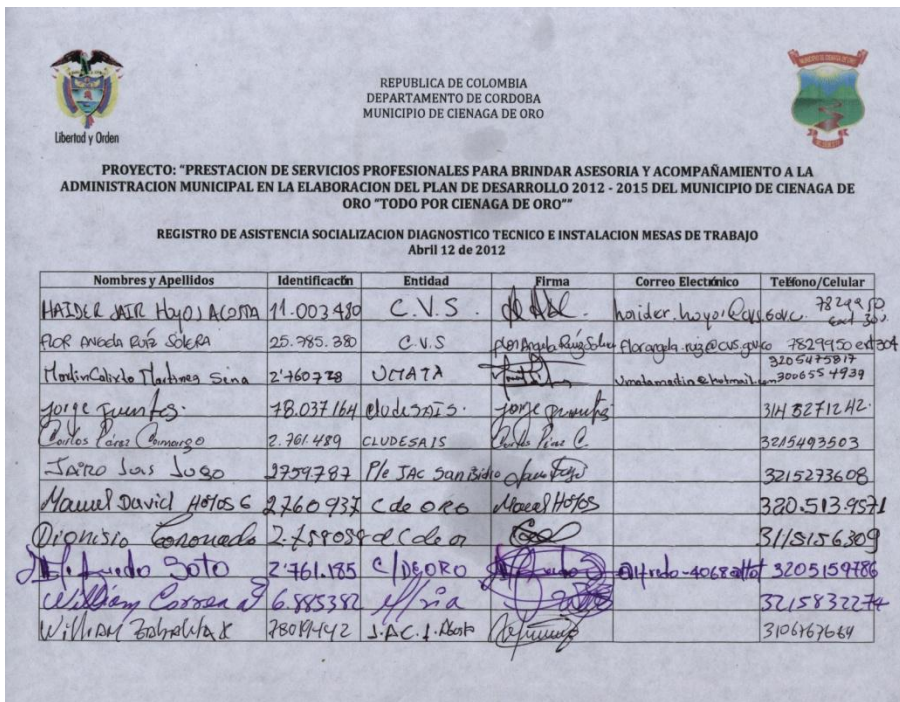 REPUBLICA DE COLOMBIA
DEPARTAMENTO DE CORDOBA
MUNICIPIO DE CIENAGA DE ORO
Libertad y Orden
PROYECTO: "PRESTACION DE SERVICIOS PROFESIONALES PARA BRINDAR ASESORIA Y ACOMPAÑAMIENTO A LA
ADMINISTRACION MUNICIPAL EN LA ELABORACION DEL PLAN DE DESARROLLO 2012 - 2015 DEL MUNICIPIO DE CIENAGA DE
ORO "TODO POR CIENAGA DE ORO""
REGISTRO DE ASISTENCIA SOCIALIZACION DIAGNOSTICO TECNICO E INSTALACION MESAS DE TRABAJO
Abril 12 de 2012
Nombres y Apellidos Identificación Entidad Firma Correo Electrónico Teléfono/Celular
HAIDER JAIR HOYOS ACOSTA 11.003.480 C.V.S. 7829950
FLOR ANGELA RUIZ SOLERA 25.785.380 C.V.S Flor Angela Ruiz Solera florangela.ruiz@cvs.gov.co 7829950 ext 304
Martinez Sena 2'760728 UMATA 3205475817
3006554939
Jorge Fuentes. 78.037164 CLUDESAIS. Jorge Fuentes
Carlos Pérez Camargo 2.761.489 CLUDESAIS Carlos Pérez C. 3215493503
JAIRO 2759787 P/e JAC San 3215273608
Manuel David HOYOS G 2760937 C de ORO HOYOS 320.513.9571
Dionisio Coronado C de or 3115156309
Soto 2'761.185 C/DEORO 3205159786
William Correa 6.885382 3215832274
WilliAM 78019442 J.A.C. 3106767664